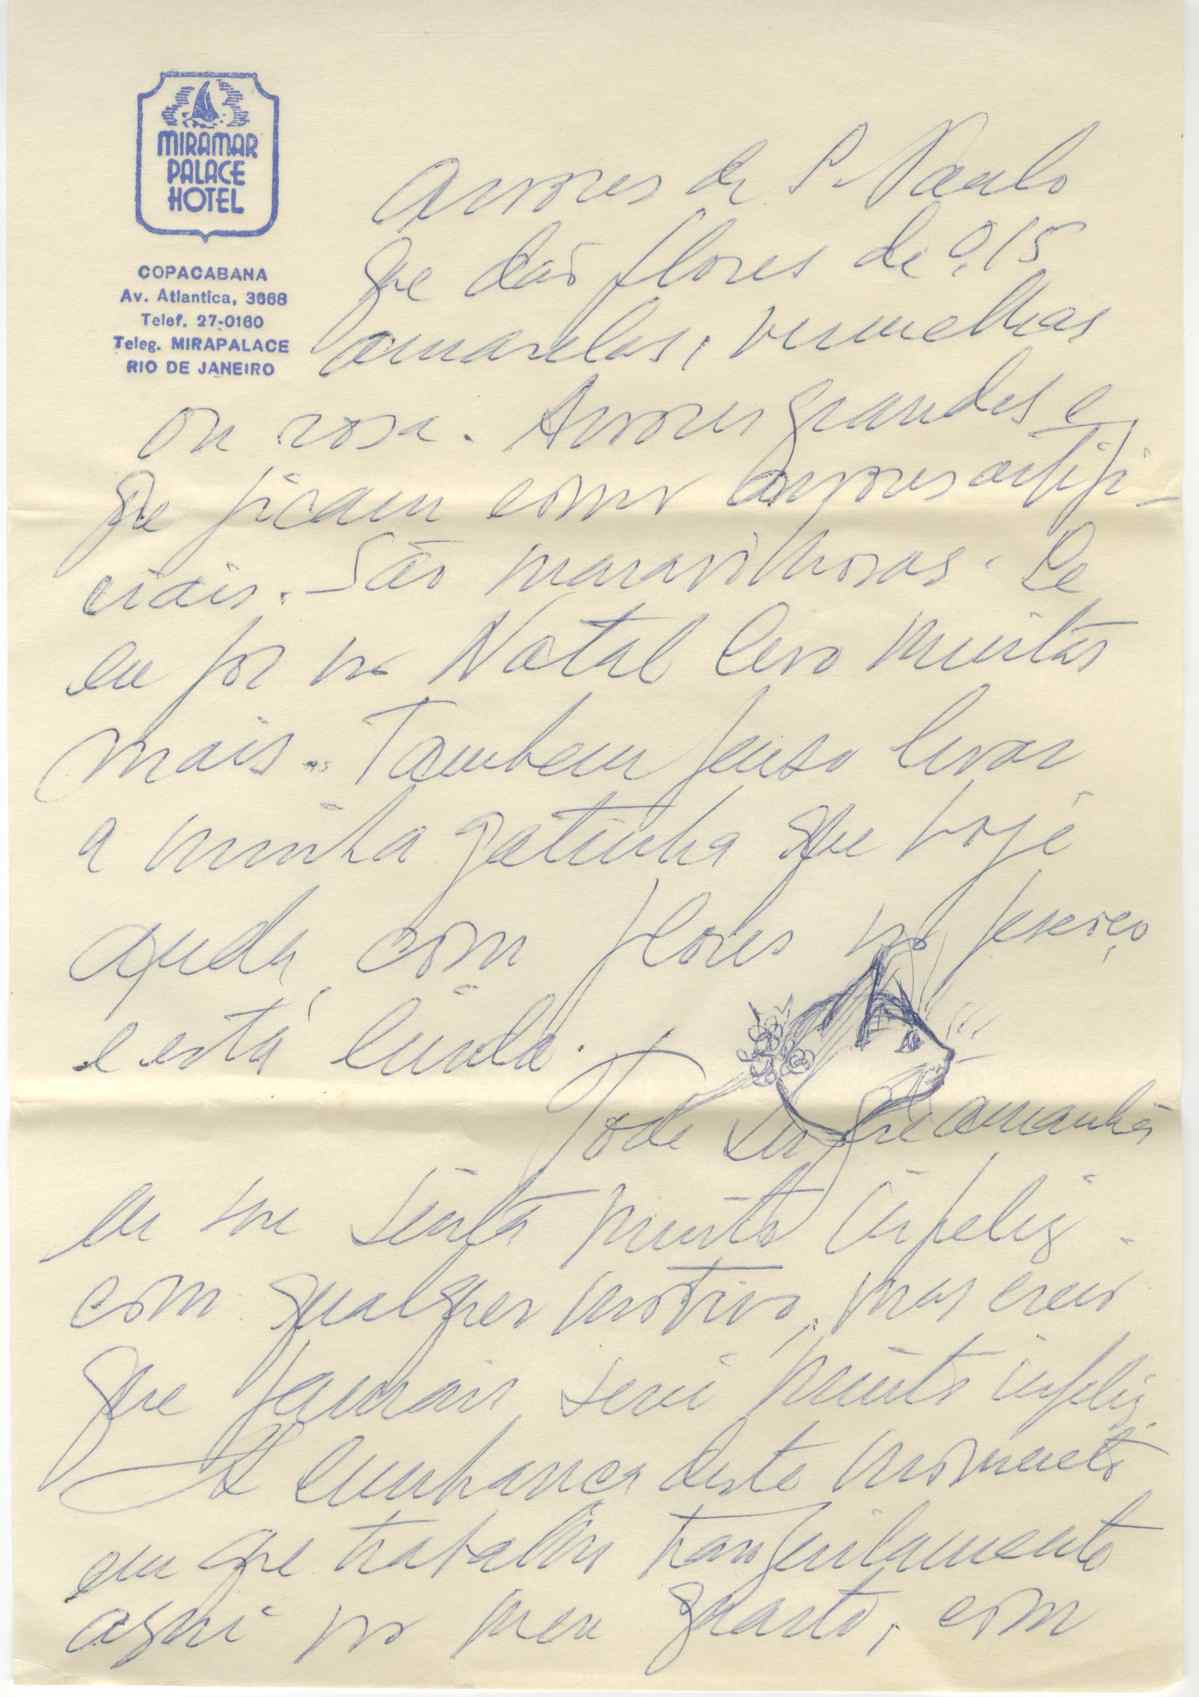 MIRAMAR
PALACE
HOTEL
COPACABANA
Av. Atlantica, 3668
Telef. 27-0160
Teleg. MIRAPALACE
RIO DE JANEIRO
arvores de S. Paulo
que dão flores de 0,15
amarelas, vermelhas
ou rosa. Arvores grandes e
que ficam como arvores artifi-
ciais. São maravilhosas. Se
eu for no Natal levo muitas
mais. Tambem penso levar
a minha gatinha que hoje
anda com flores no pescoço
e está linda.
Pode ser que amanhã
eu me sinta muito infeliz
com qualquer motivo, mas creio
que jamais serei muito infeliz.
A lembrança deste momento
em que trabalho tranquilamente
aqui no meu quarto, com